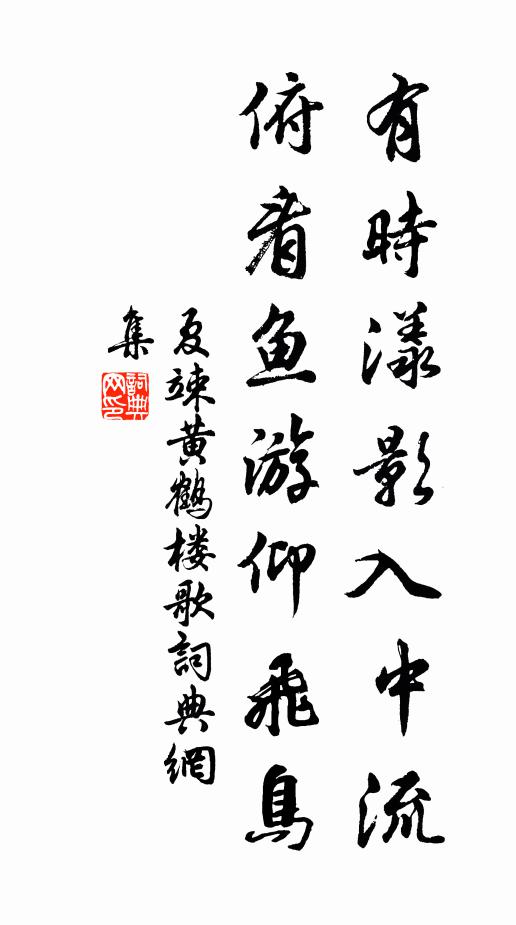 有時漾影入中流
俯看魚游仰飛鳥
夏竦黄鶴楼歌詞典網
集
詞典
网印